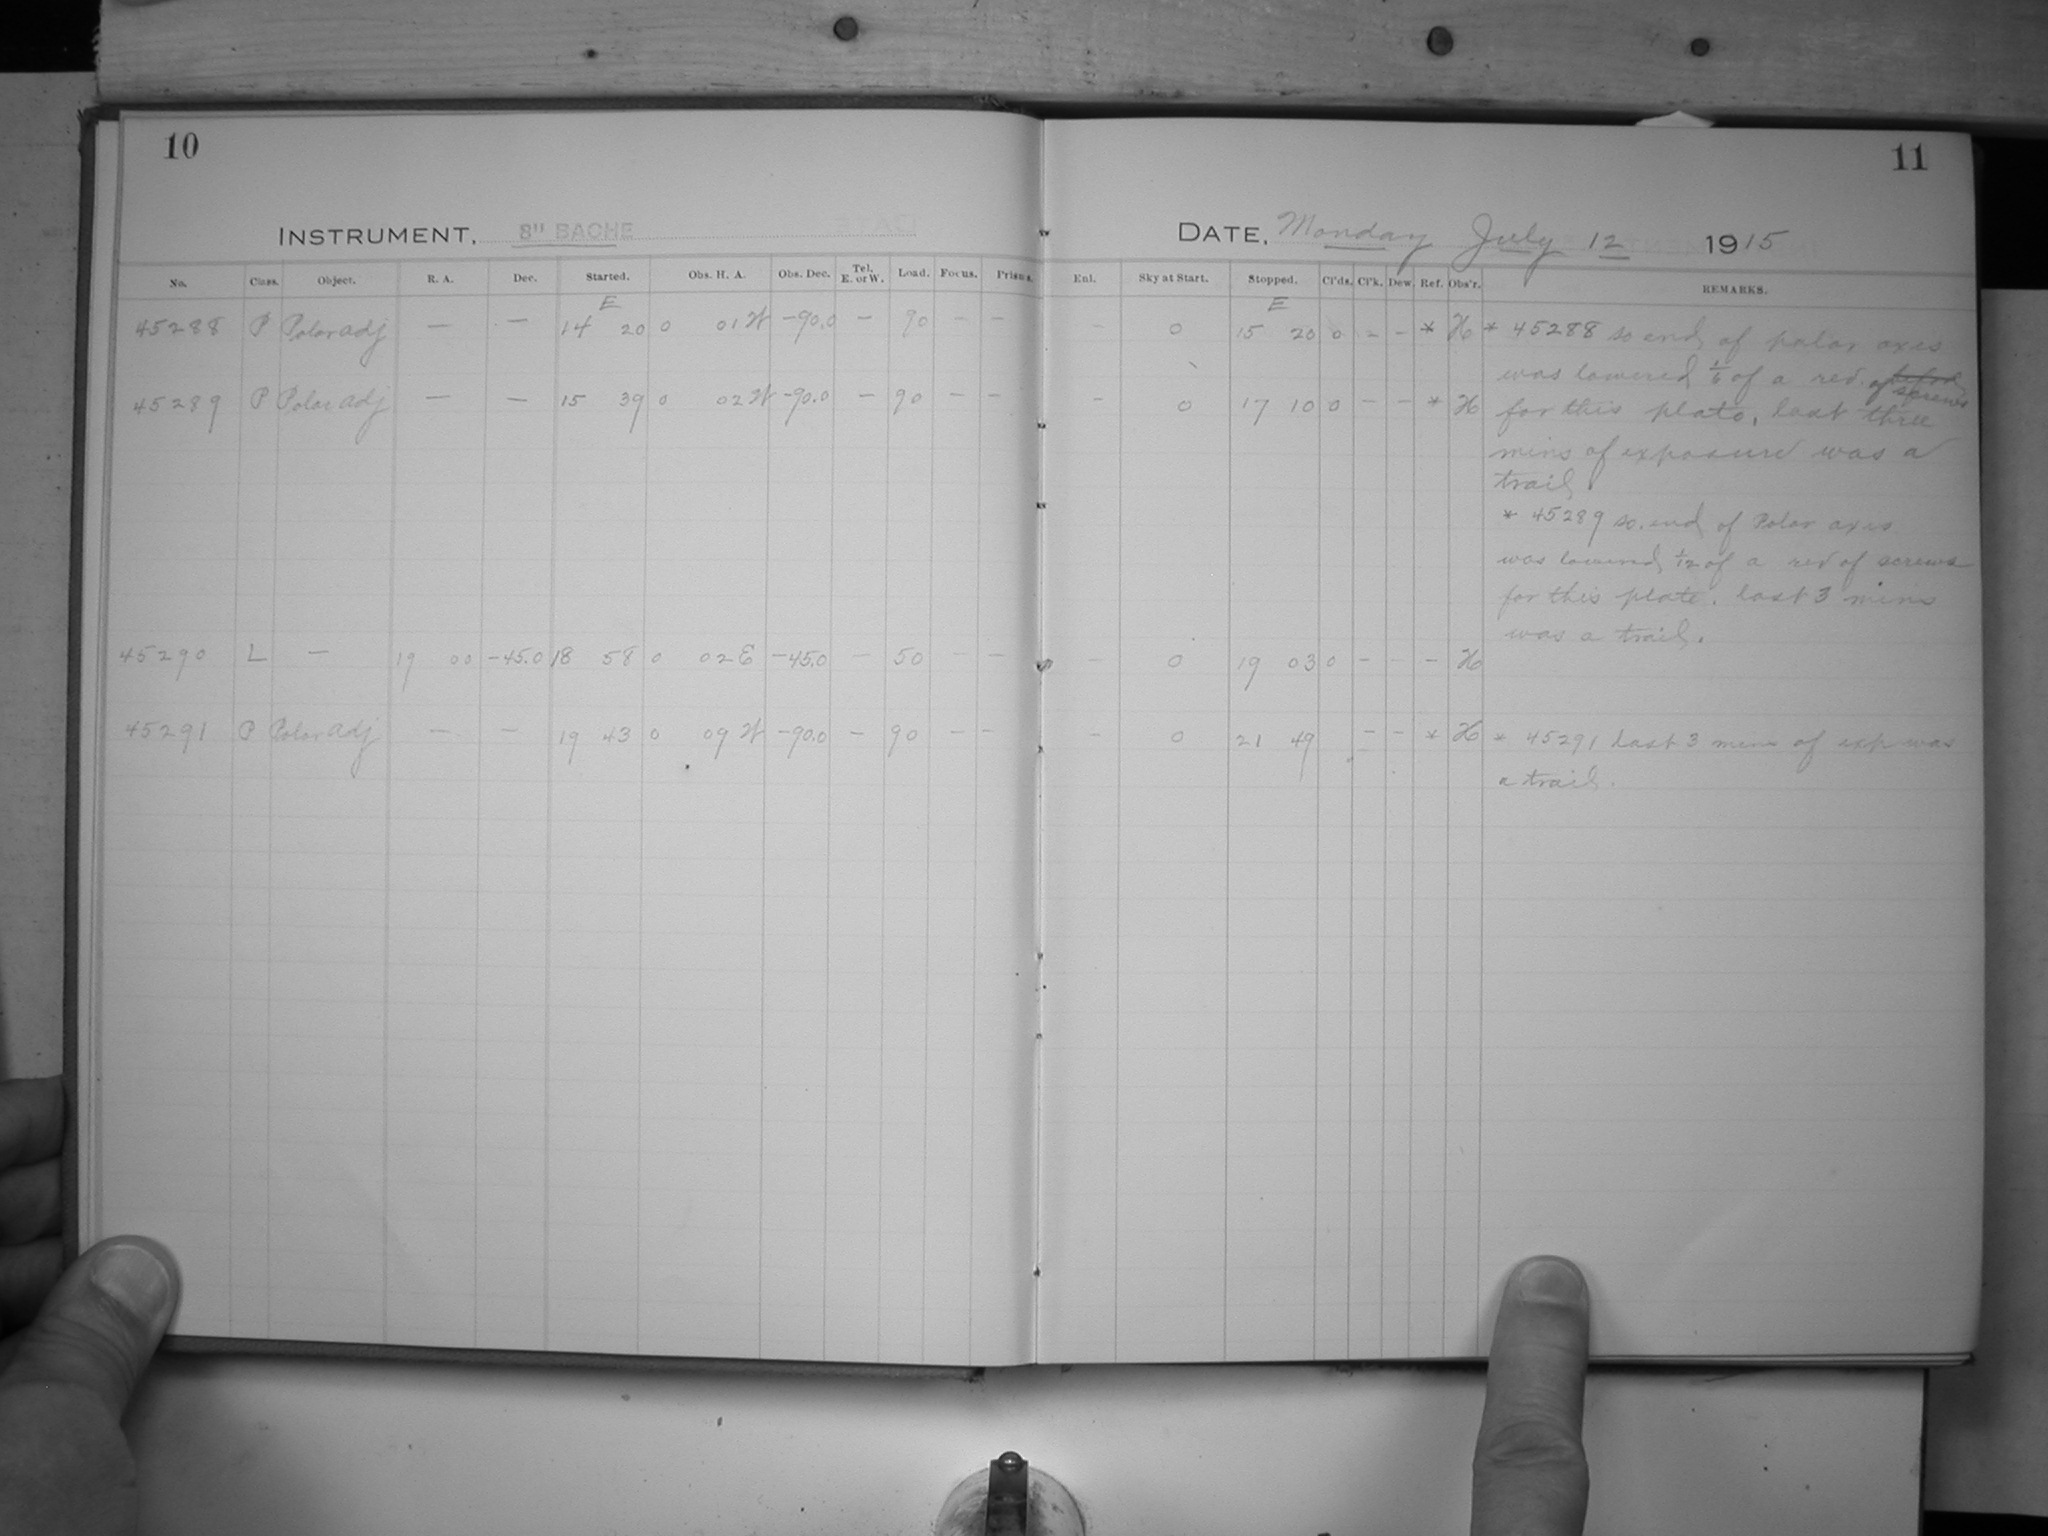 10
INSTRUMENT, 8" BACHE
No. Class. Object. R. A. Dec. Started. Obs. H. A. Obs. Dec. Tel. E. or W. Load. Focus. Prisms.
E
45288 P Polar adj — — 14 20 0 01 W -90.0 — 90 — —
45289 P Polar adj — — 15 39 0 02 W -90.0 — 90 — —
45290 L — 19 00 -45.0 18 58 0 02 E -45.0 — 50 — —
45291 P Polar adj — — 19 43 0 09 W -90.0 — 90 — —
11
DATE, Monday July 12 1915
Enl. Sky at Start. Stopped. Cl'ds. Cl'k. Dew. Ref. Obs'r. REMARKS.
E
- 0 15 20 0 - - * H * 45288 so end of polar axis
was lowered 1/6 of a rev. of screws
- 0 17 10 0 - - * H for this plate, last three
mins of exposure was a
trail.
* 45289 so. end of Polar axis
was lowered 1/12 of a rev of screws
for this plate. last 3 mins
was a trail.
- 0 19 03 0 - - - H
- 0 21 49 - - * H * 45291 last 3 mins of exp was
a trail.